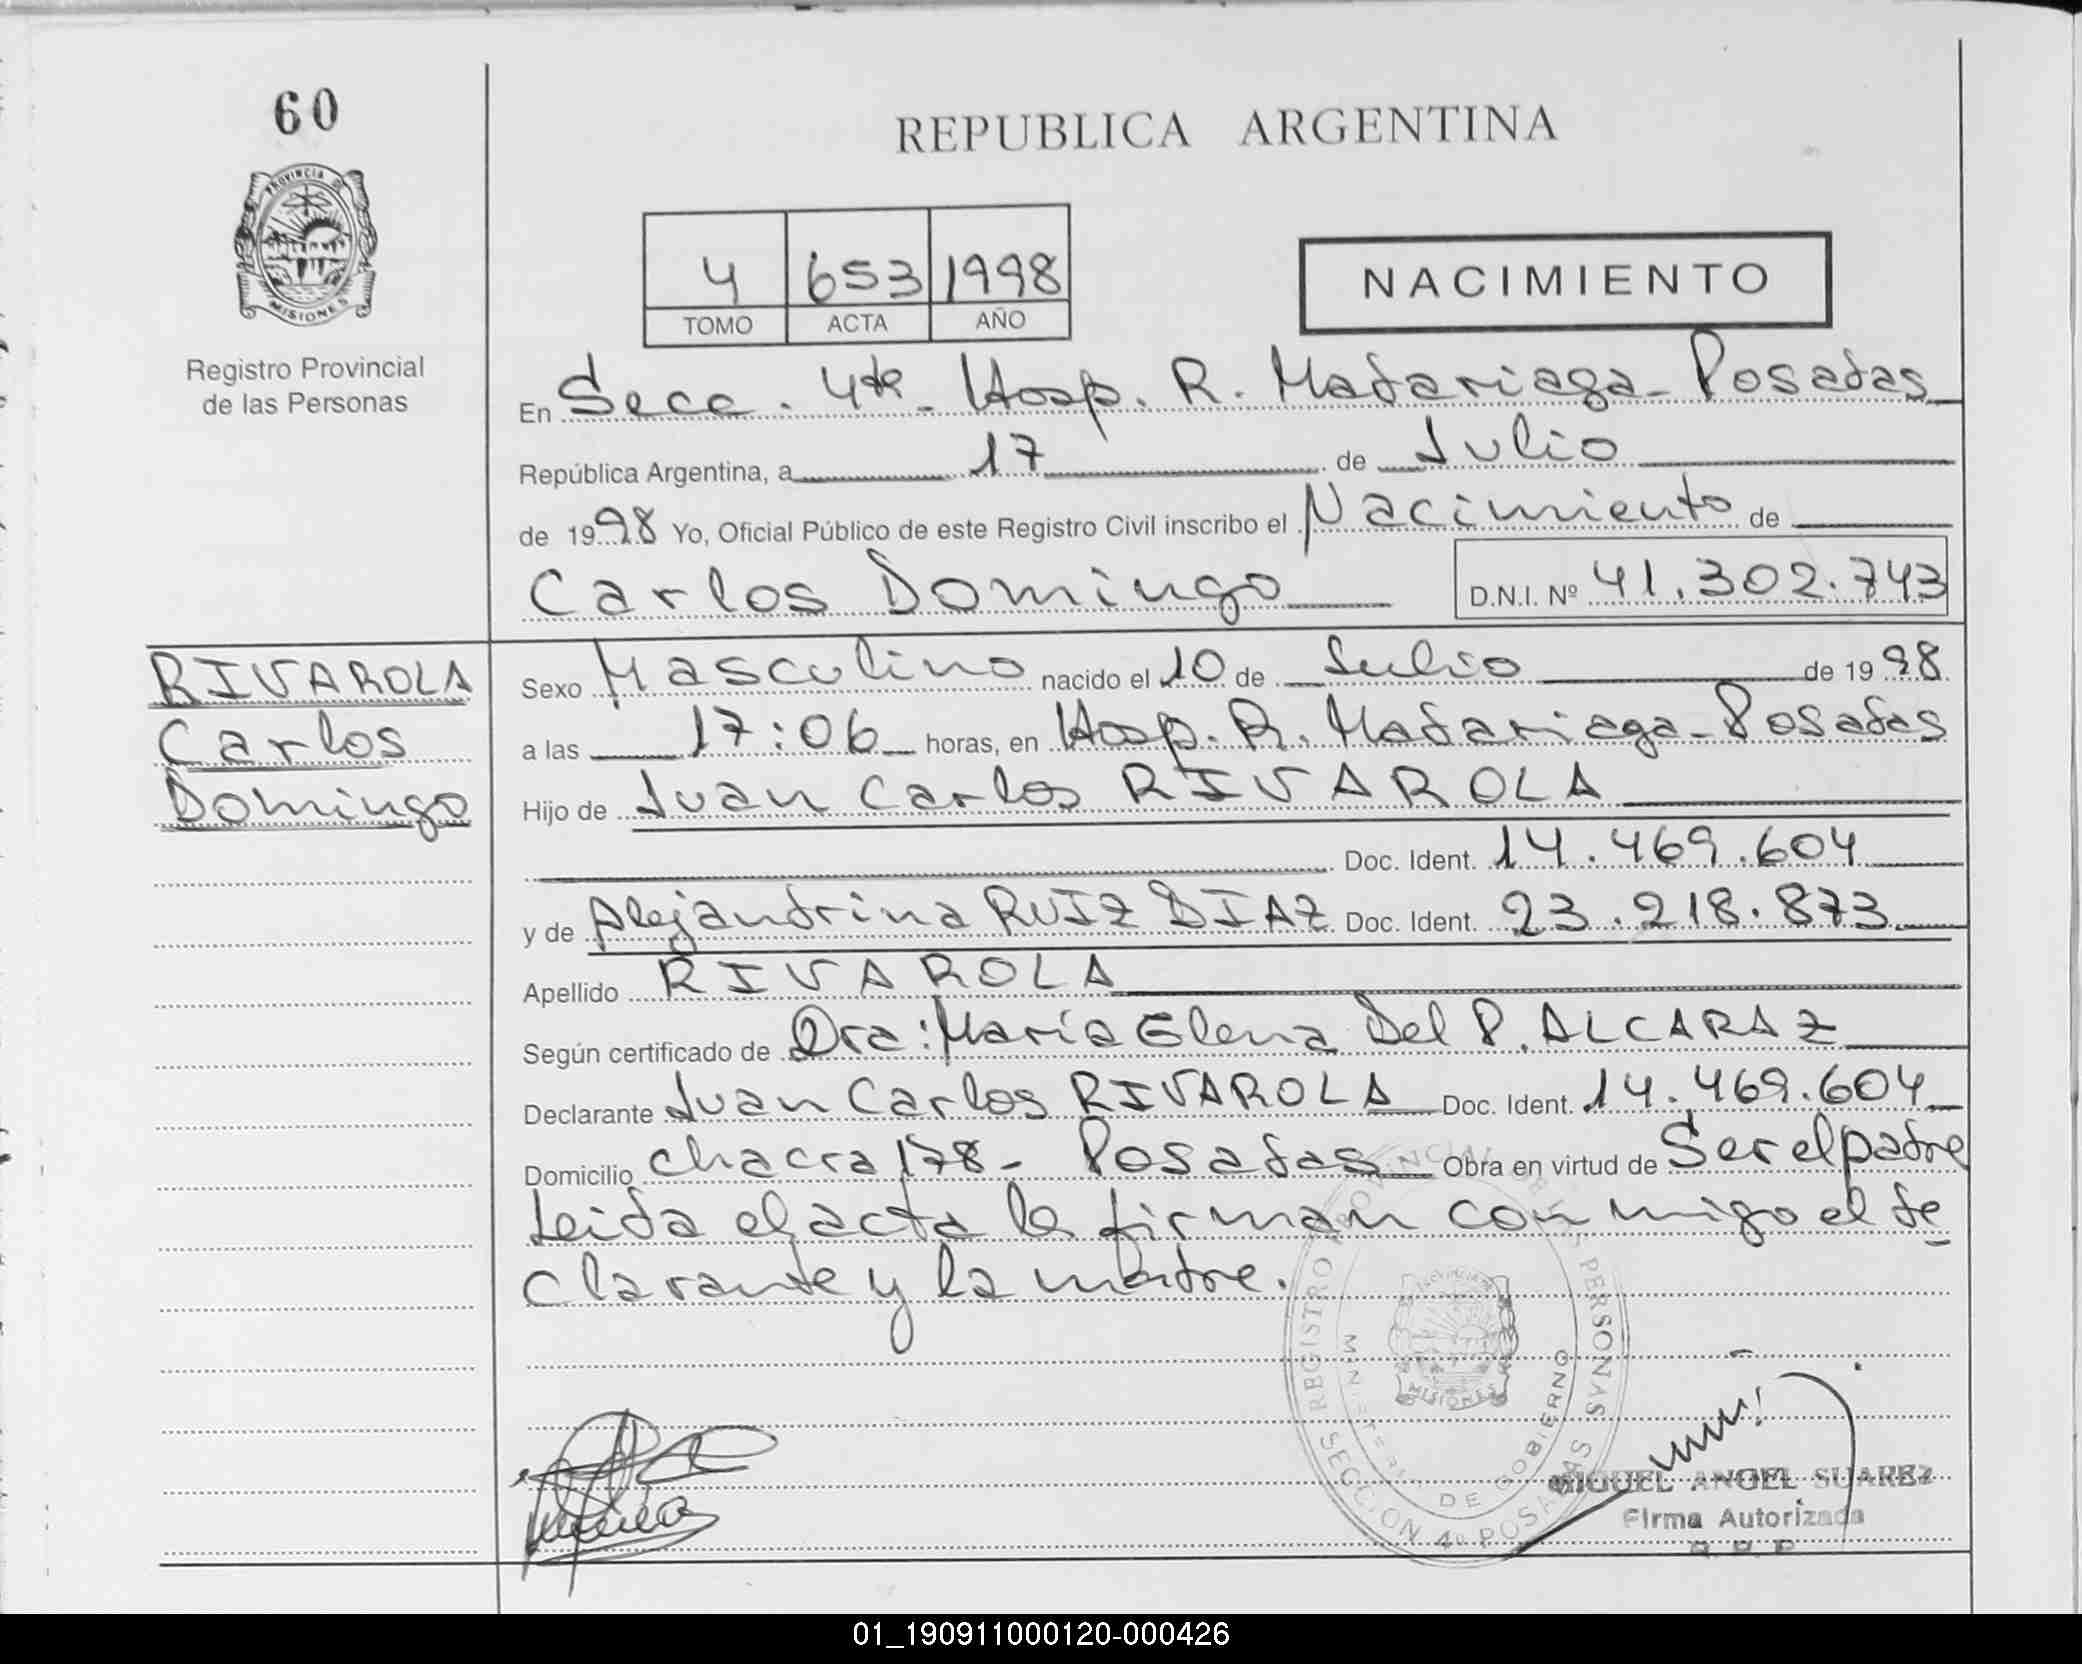 60
PROVINCIA DE
MISIONES
Registro Provincial
de las Personas
REPUBLICA ARGENTINA
4 653 1998
TOMO ACTA AÑO
NACIMIENTO
En Secc. 4ta - Hosp. R. Madariaga - Posadas
República Argentina, a 17 de Julio
de 1998 Yo, Oficial Público de este Registro Civil inscribo el Nacimiento de
Carlos Domingo D.N.I. Nº 41.302.743
RIVAROLA
Carlos
Domingo
Sexo Masculino nacido el 10 de Julio de 1998
a las 17:06 horas, en Hosp. R. Madariaga - Posadas
Hijo de Juan Carlos RIVAROLA
Doc. Ident. 14.469.604
y de Alejandrina RUIZ DIAZ Doc. Ident. 23.218.873
Apellido RIVAROLA
Según certificado de Dra: María Elena Del P. ALCARAZ
Declarante Juan Carlos RIVAROLA Doc. Ident. 14.469.604
Domicilio chacra 178 - Posadas Obra en virtud de Ser el padre
Leida el acta la firman conmigo el de
clarante y la madre.
REGISTRO PROVINCIAL DE LAS PERSONAS
MINISTERIO DE GOBIERNO
MISIONES
SECCION 4º POSADAS
MIGUEL ANGEL SUAREZ
Firma Autorizada
R. P. P.
01_190911000120-000426